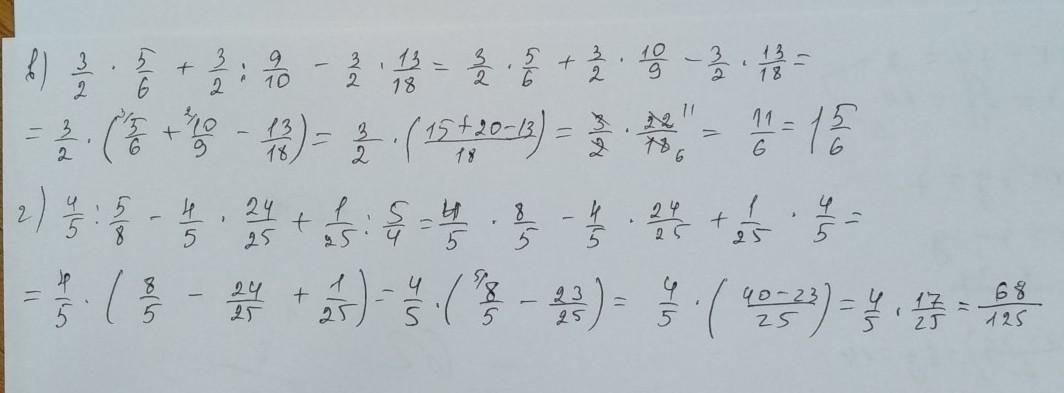 в) 3/2 · 5/6 + 3/2 : 9/10 - 3/2 · 13/18 = 3/2 · 5/6 + 3/2 · 10/9 - 3/2 · 13/18 =
= 3/2 · (3/ 5/6 + 2/ 10/9 - 13/18) = 3/2 · (15+20-13)/18 = 3/2 · 22/18 11 6 = 11/6 = 1 5/6
г) 4/5 : 5/8 - 4/5 · 24/25 + 1/25 : 5/4 = 4/5 · 8/5 - 4/5 · 24/25 + 1/25 · 4/5 =
= 4/5 · (8/5 - 24/25 + 1/25) = 4/5 · (5/ 8/5 - 23/25) = 4/5 · (40-23/25) = 4/5 · 17/25 = 68/125